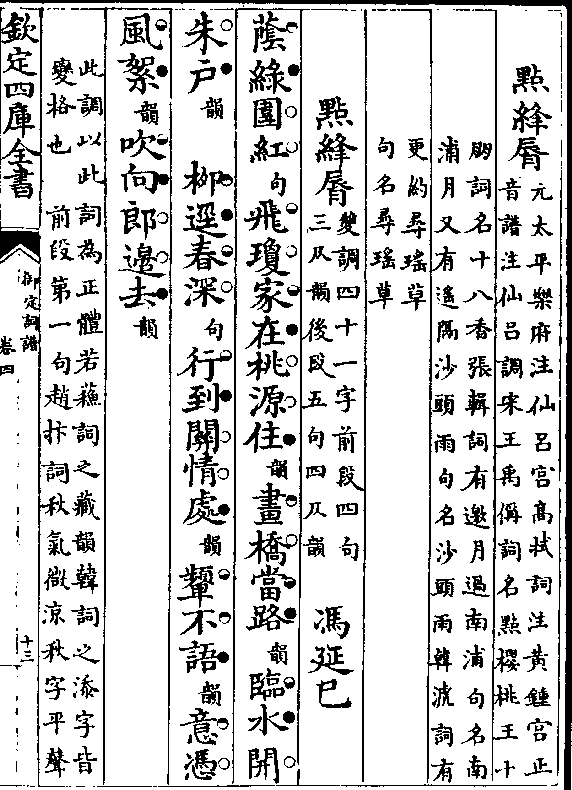 點絳脣 元太平樂府注仙呂宮高拭詞注黃鍾宮正
音譜注仙呂調宋王禹偁詞名點櫻桃王十
朋詞名十八香張輯詞有邀月過南浦句名南
浦月又有遥隔沙頭雨句名沙頭雨韓淲詞有
更約尋瑶草
句名尋瑶草
點絳脣 雙調四十一字前段四句
三仄韻後段五句四仄韻 馮延巳
蔭綠圍紅句飛瓊家在桃源住韻畫橋當路韻臨水開
朱戶韻 柳逕春深句行到關情處韻顰不語韻意憑
風絮韻吹向郎邊去韻
此調以此詞為正體若蘇詞之藏韻韓詞之添字皆
變格也 前段第一句趙抃詞秋氣微涼秋字平聲
欽定四庫全書
御定詞譜
卷四
十三